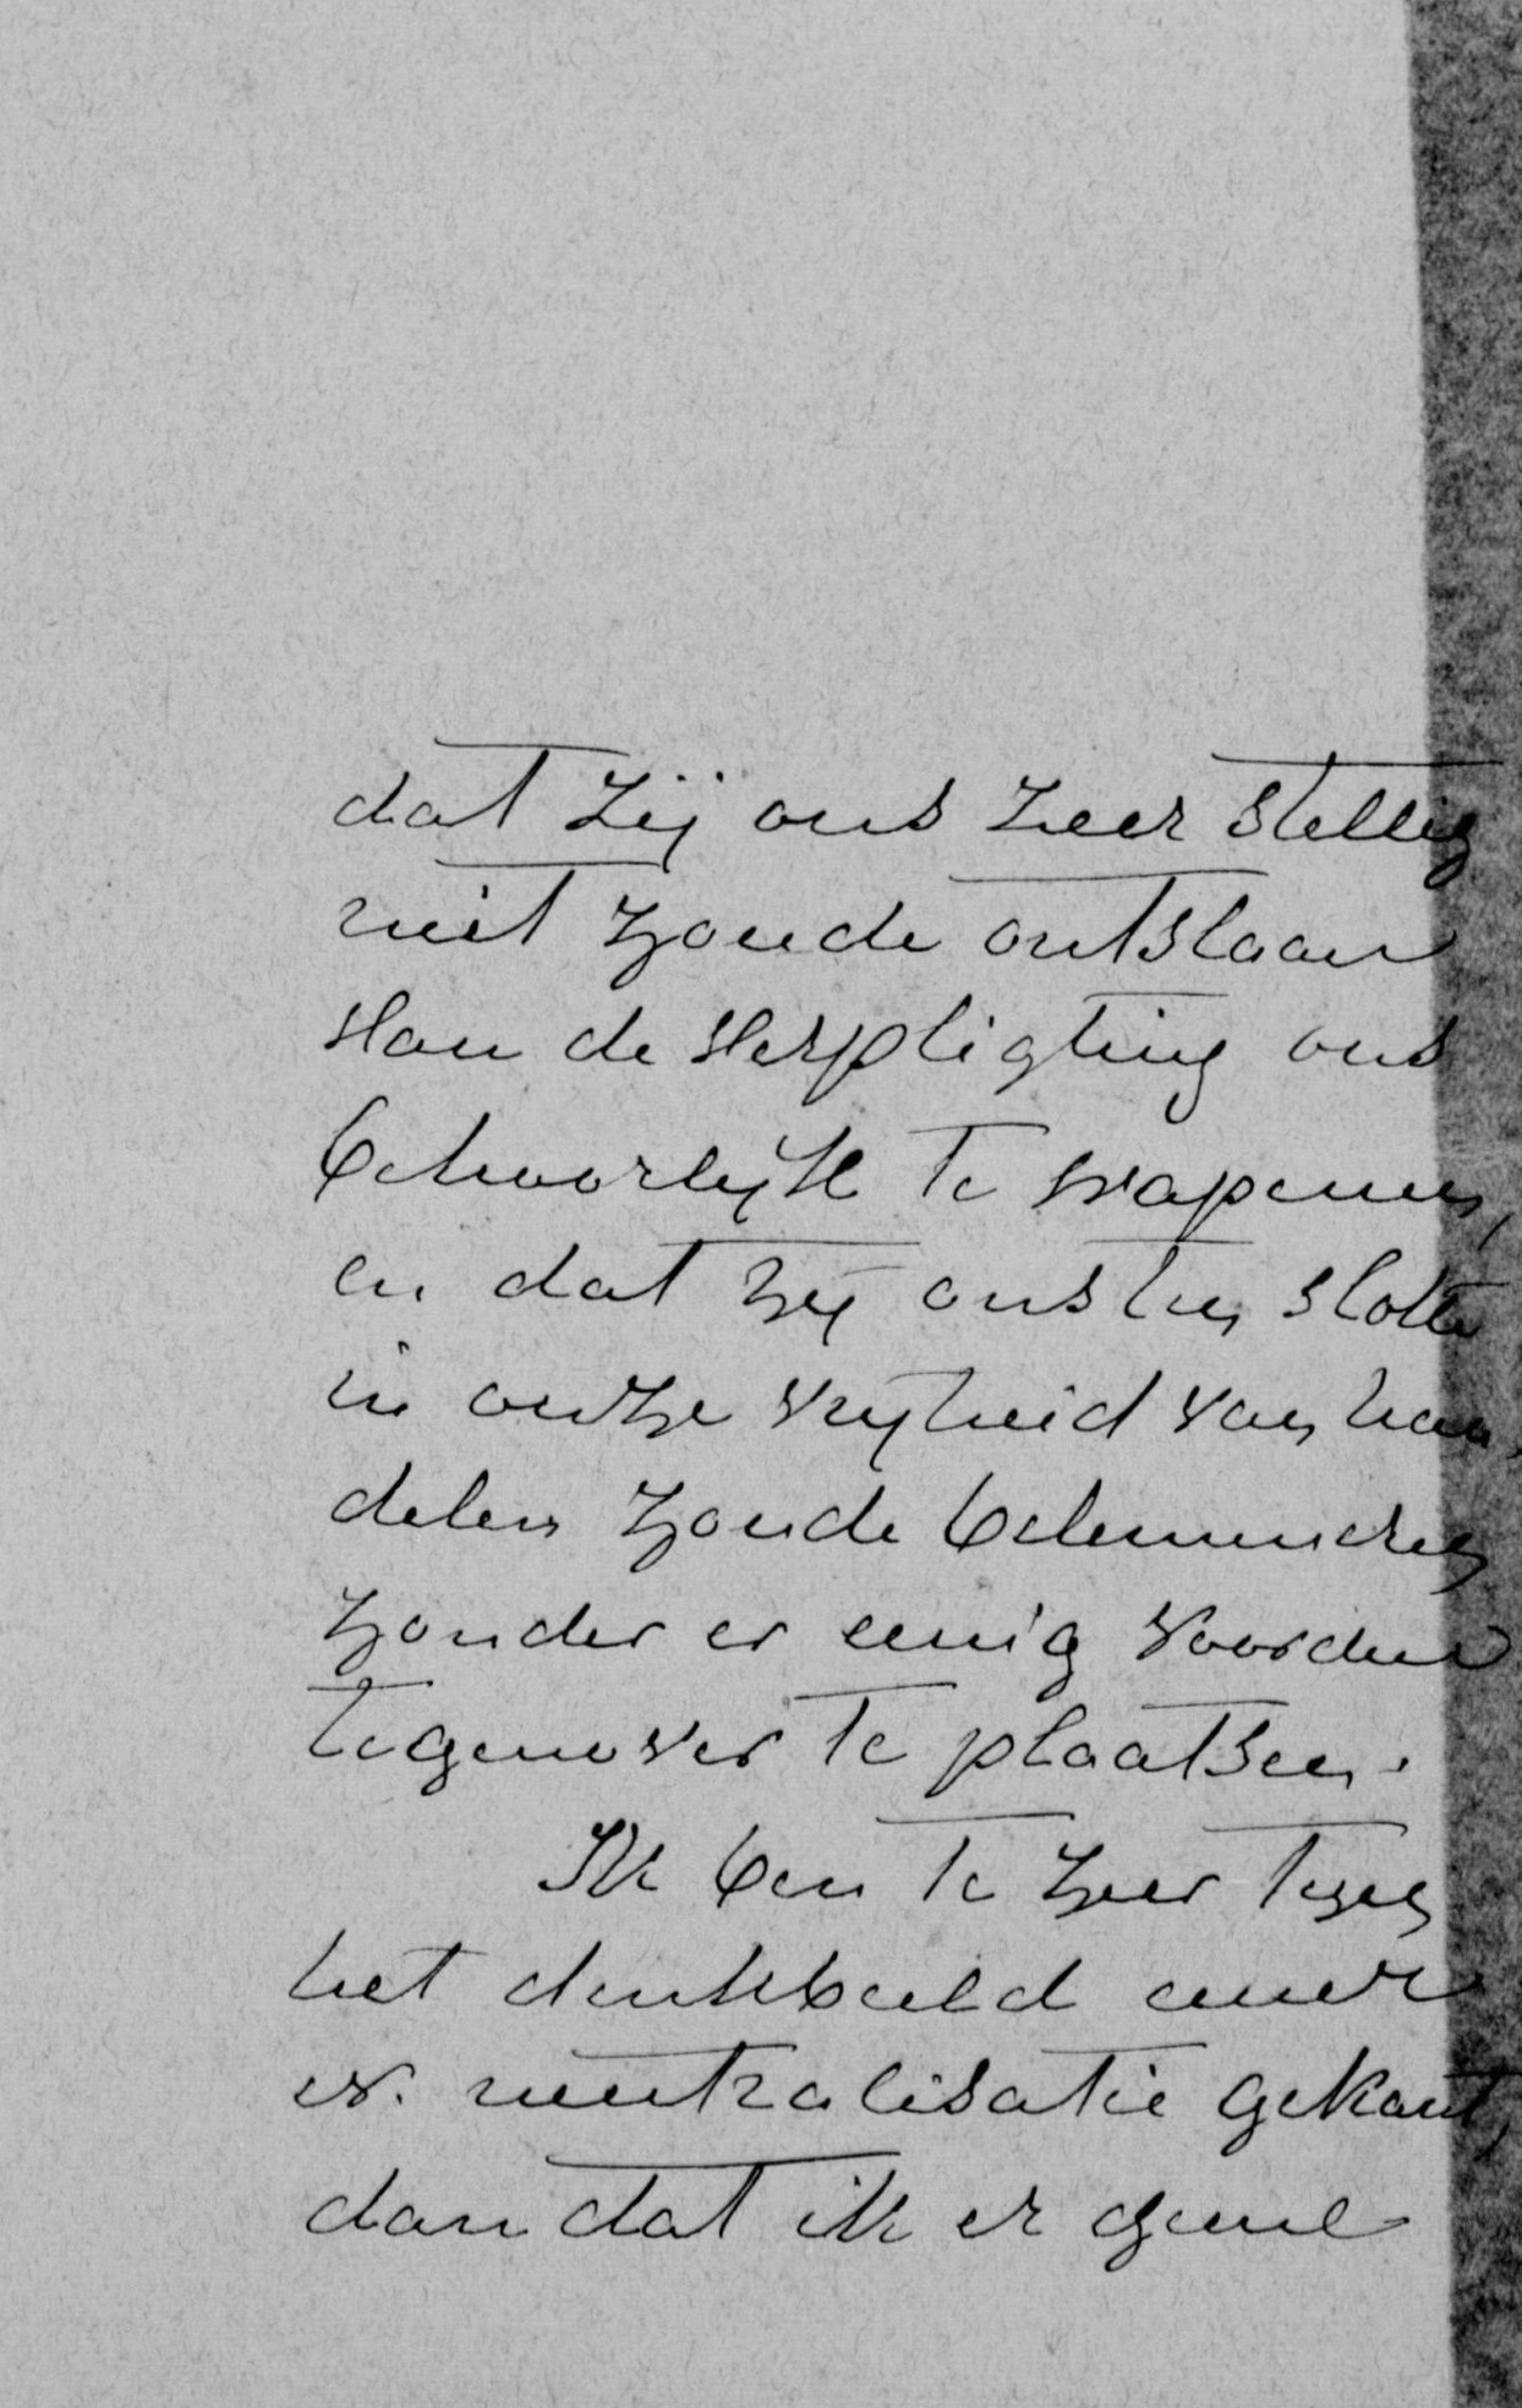 dat zij ons zeer stellig
niet zoude ontslaan
van de verpligting ons
behoorlijk te wapenen,
en dat zij ons ten slotte
in onze vrijheid van han-
delen zoude belemmeren
zonder er eenig voordeel
tegenover te plaatsen.
Ik ben te zeer tegen
het denkbeeld eener
neutralisatie gekant,
dan dat ik er geene